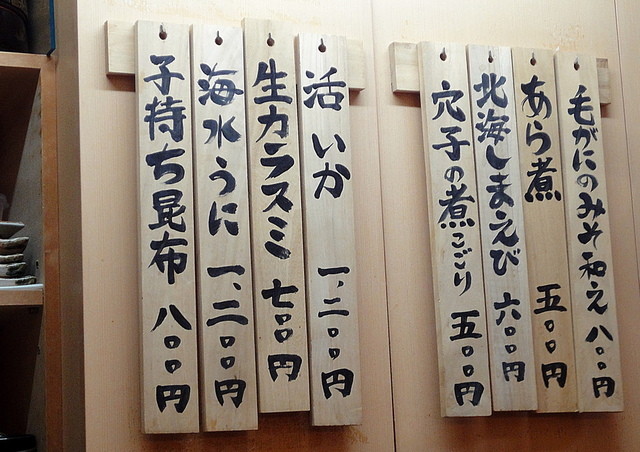 毛がにのみそ和え 八〇〇円
あら煮 五〇〇円
北海しまえび 六〇〇円
穴子の煮こごり 五〇〇円
活いか 一、二〇〇円
生カラスミ 七〇〇円
海水うに 一、二〇〇円
子持ち昆布 八〇〇円